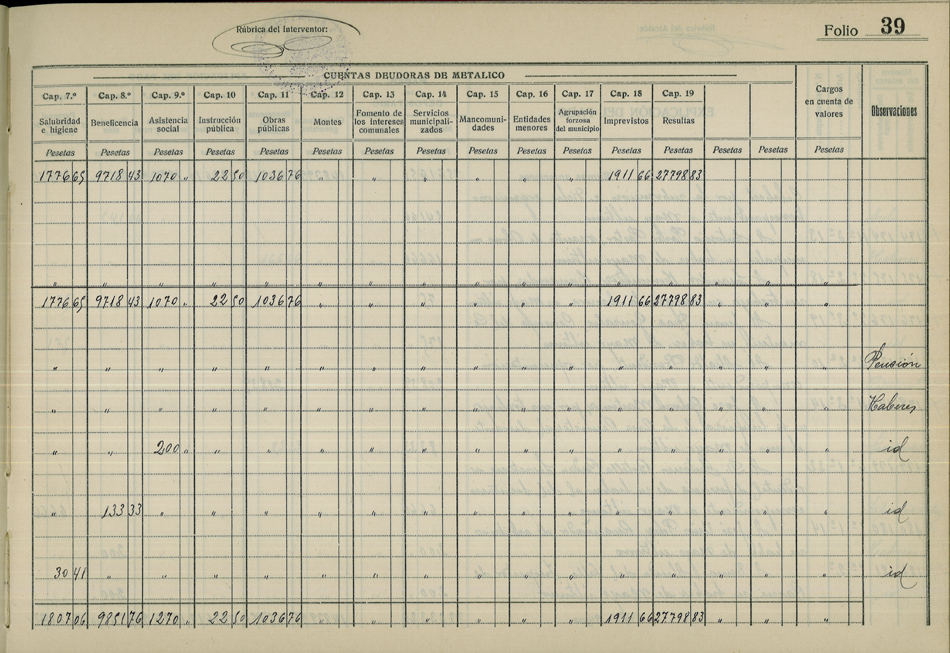 Rúbrica del Interventor:
Folio 39
CUENTAS DEUDORAS DE METALICO
Cap. 7.º Cap. 8.º Cap. 9.º Cap. 10 Cap. 11 Cap. 12 Cap. 13 Cap. 14 Cap. 15 Cap. 16 Cap. 17 Cap. 18 Cap. 19
Salubridad e higiene Beneficencia Asistencia social Instrucción pública Obras públicas Montes Fomento de los intereses comunales Servicios municipalizados Mancomunidades Entidades menores Agrupación forzosa del municipio Imprevistos Resultas Cargos en cuenta de valores Observaciones
Pesetas Pesetas Pesetas Pesetas Pesetas Pesetas Pesetas Pesetas Pesetas Pesetas Pesetas Pesetas Pesetas Pesetas Pesetas Pesetas
1776 65 9718 43 1070 " 22 50 1036 76 " " " " " " 1911 66 27798 83 " " "
" " " " " " " " " " " " " " " "
1776 65 9718 43 1070 " 22 50 1036 76 " " " " " " 1911 66 27798 83 " " "
" " " " " " " " " " " " " " " " Pensión
" " " " " " " " " " " " " " " " Haberes
" " 200 " " " " " " " " " " " " " " id
" 133 33 " " " " " " " " " " " " " " id
30 41 " " " " " " " " " " " " " " " id
1807 06 9851 76 1270 " 22 50 1036 76 " " " " " " 1911 66 27798 83 " " "